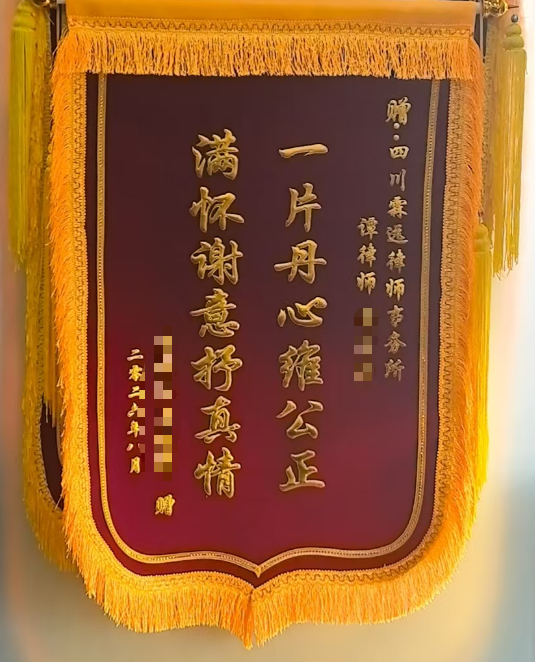 赠：四川霖远律师事务所
谭律师
一片丹心维公正
满怀谢意抒真情
赠
二零二六年八月